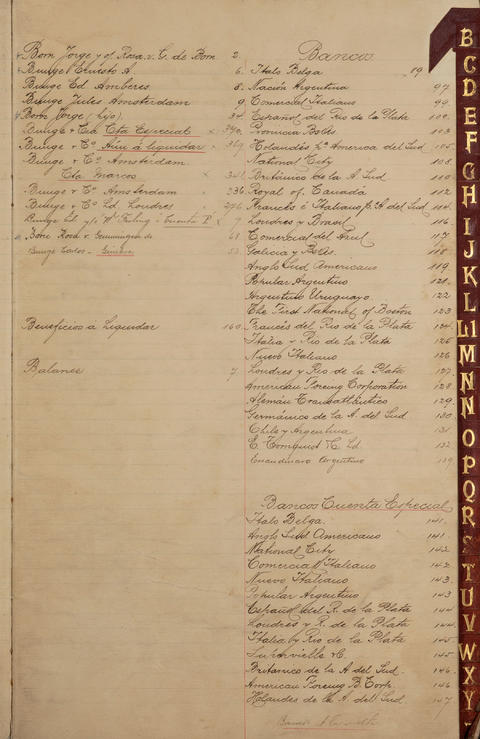 Born Jorge y of. Rosa. v. G. de Born 2.
Bunge Ernesto A. 6.
Bunge Ed. Amberes 8.
Bunge Jules Amsterdam 9.
Born Jorge (hijo) 34
Bunge & Cia Cta Especial
Bunge & Co. 369
Bunge & Co. Amsterdam
Cta Marcos
Bunge & Co. Amsterdam 236
Bunge & Co. Ld. Londres 276
Bunge Carlos - Geneva
Beneficios a Liquidar 160
Balance 7
Bancos
Italo Belga 89
Nación Argentina 97
Comercial Italiano 99
Español del Rio de la Plata 100
Provincia BsAs 103
Holandés pa America del Sud 105
National City 108
Británico de la A. Sud 110
Royal of. Canadá 112
Francés é Italiano p. A. del Sud 114
Londres y Brasil 116
Comercial del Azul 117
Galicia y BsAs. 118
Anglo Sud Americano 119
Popular Argentino 121
Argentino Uruguayo 122
The First National of Boston 123
Francés del Rio de la Plata 124
Italia y Rio de la Plata 125
Nuevo Italiano 126
Londres y Rio de la Plata 127
American Foreing Corporation 128
Alemán Transatlántico 129
Germánico de la A. del Sud 130
Chile y Argentina 131
E. Tornquist & C. Ld. 132
Escandinavo Argentino 139
Bancos Cuenta Especial
Italo Belga. 141
Anglo Sud Americano 141
National City 142
Comercial Italiano 142
Nuevo Italiano 143
Popular Argentino 143
Español del R. de la Plata 144
Londres y R. de la Plata 144
Italia y Rio de la Plata 145
Supervielle & C. 145
Britanico de la A. del Sud. 146
American Foreing B. Corp. 146
Holandes de la A. del Sud 147
B
C
D
E
F
G
H
I
J
K
L
Ll
M
N
Ñ
O
P
Q
R
S
T
U
V
W
X
Y